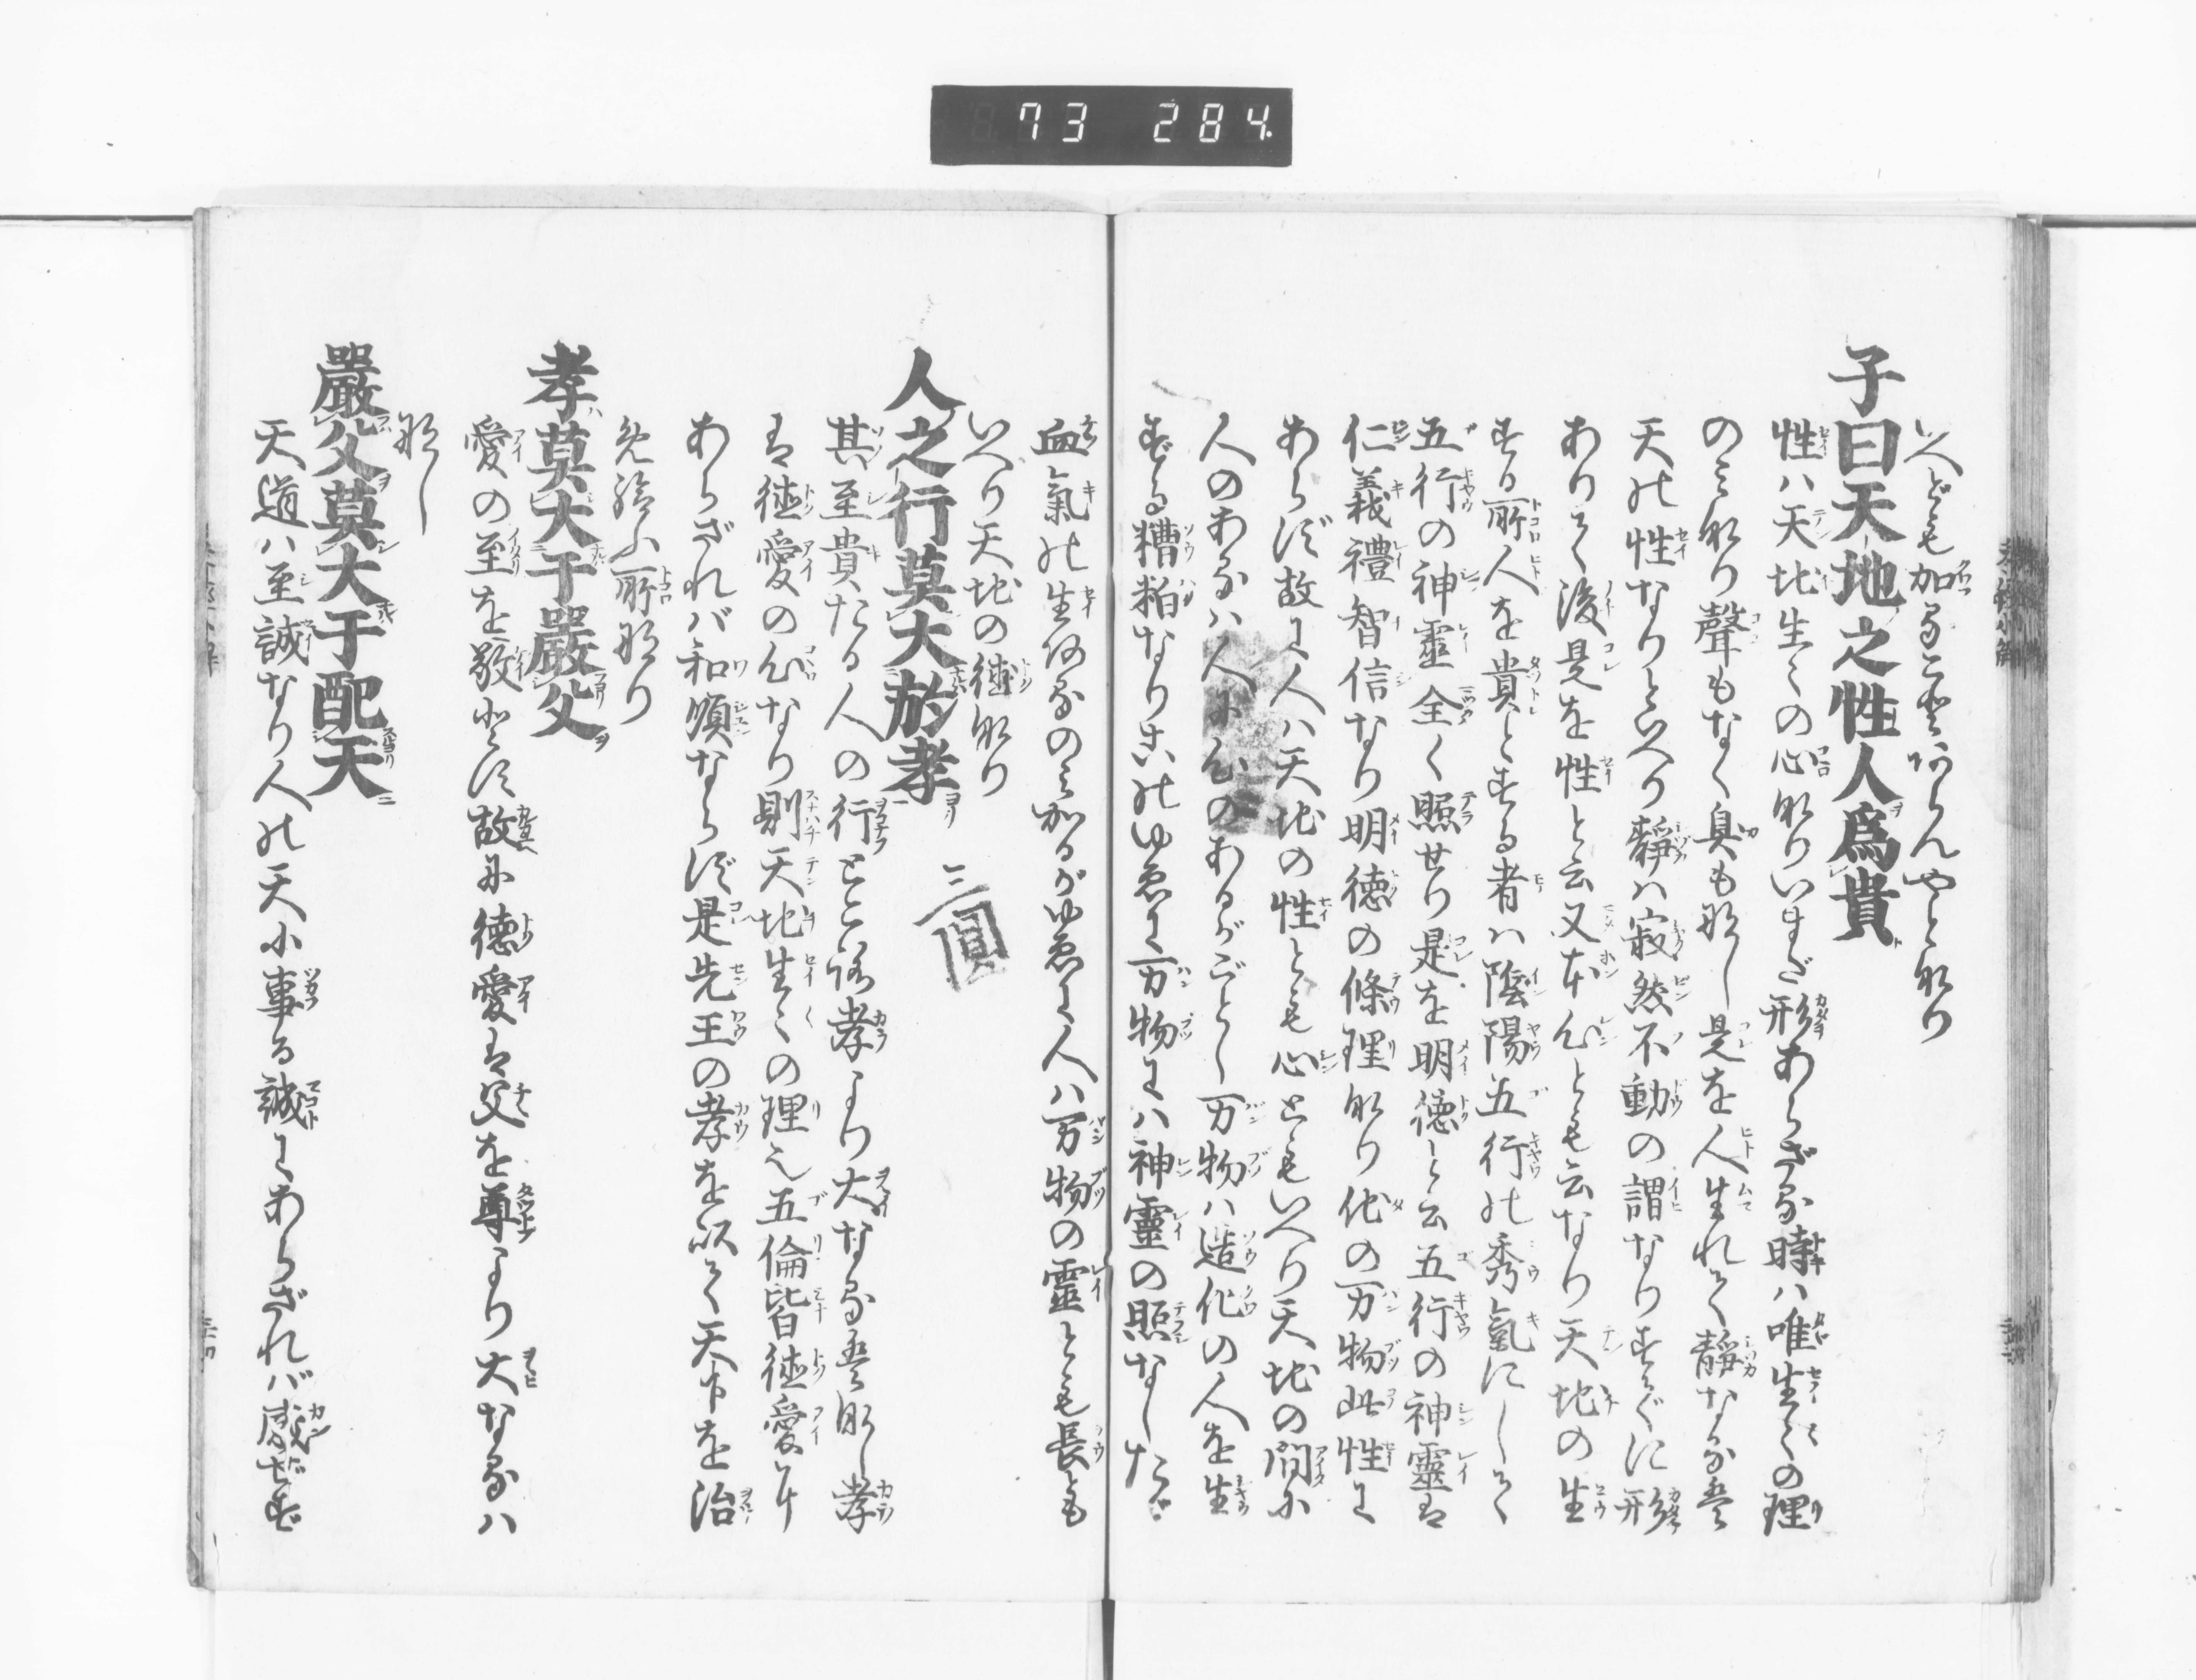 73 284.
いへども加ることあらんやと也
子曰天地之性人爲貴
性ハ天地生〻の心也いまだ形あらざる時ハ唯生〻の理
のミ也聲もなく臭も那し是を人生れて靜なる
天の性なりといへり靜ハ寂然不動の謂なりすでに形
ありて後是を性と云又本心とも云なり天地の生
ずる所人を貴とする者ハ陰陽五行の秀氣にして
五行の神靈全く照せり是を明徳と云五行の神靈は
仁義禮智信なり明徳の條理也他の万物此性に
あらず故に人ハ天地の性とも心ともいへり天地の間に
人のあるハ人に心のあるがごとし万物ハ造化の人を生
ずる糟粕なりこのゆゑに万物にハ神靈の照なしたゞ
血氣の生あるのミかるがゆゑに人ハ万物の靈とも長とも
いへり天地の徳也
人之行莫大於孝
三圓
其至貴たる人の行ところ孝より大なるは那し孝
は徳愛の心なり則天地生〻の理也五倫皆徳愛に
あらざれバ和順ならず是先王の孝を以て天下を治
め給ふ所那り
孝莫大于嚴父
愛の至を敬とす故に徳愛は父を尊より大なるハ
那し
嚴父莫大于配天
天道ハ至誠なり人の天に事る誠にあらざれバ感ぜず